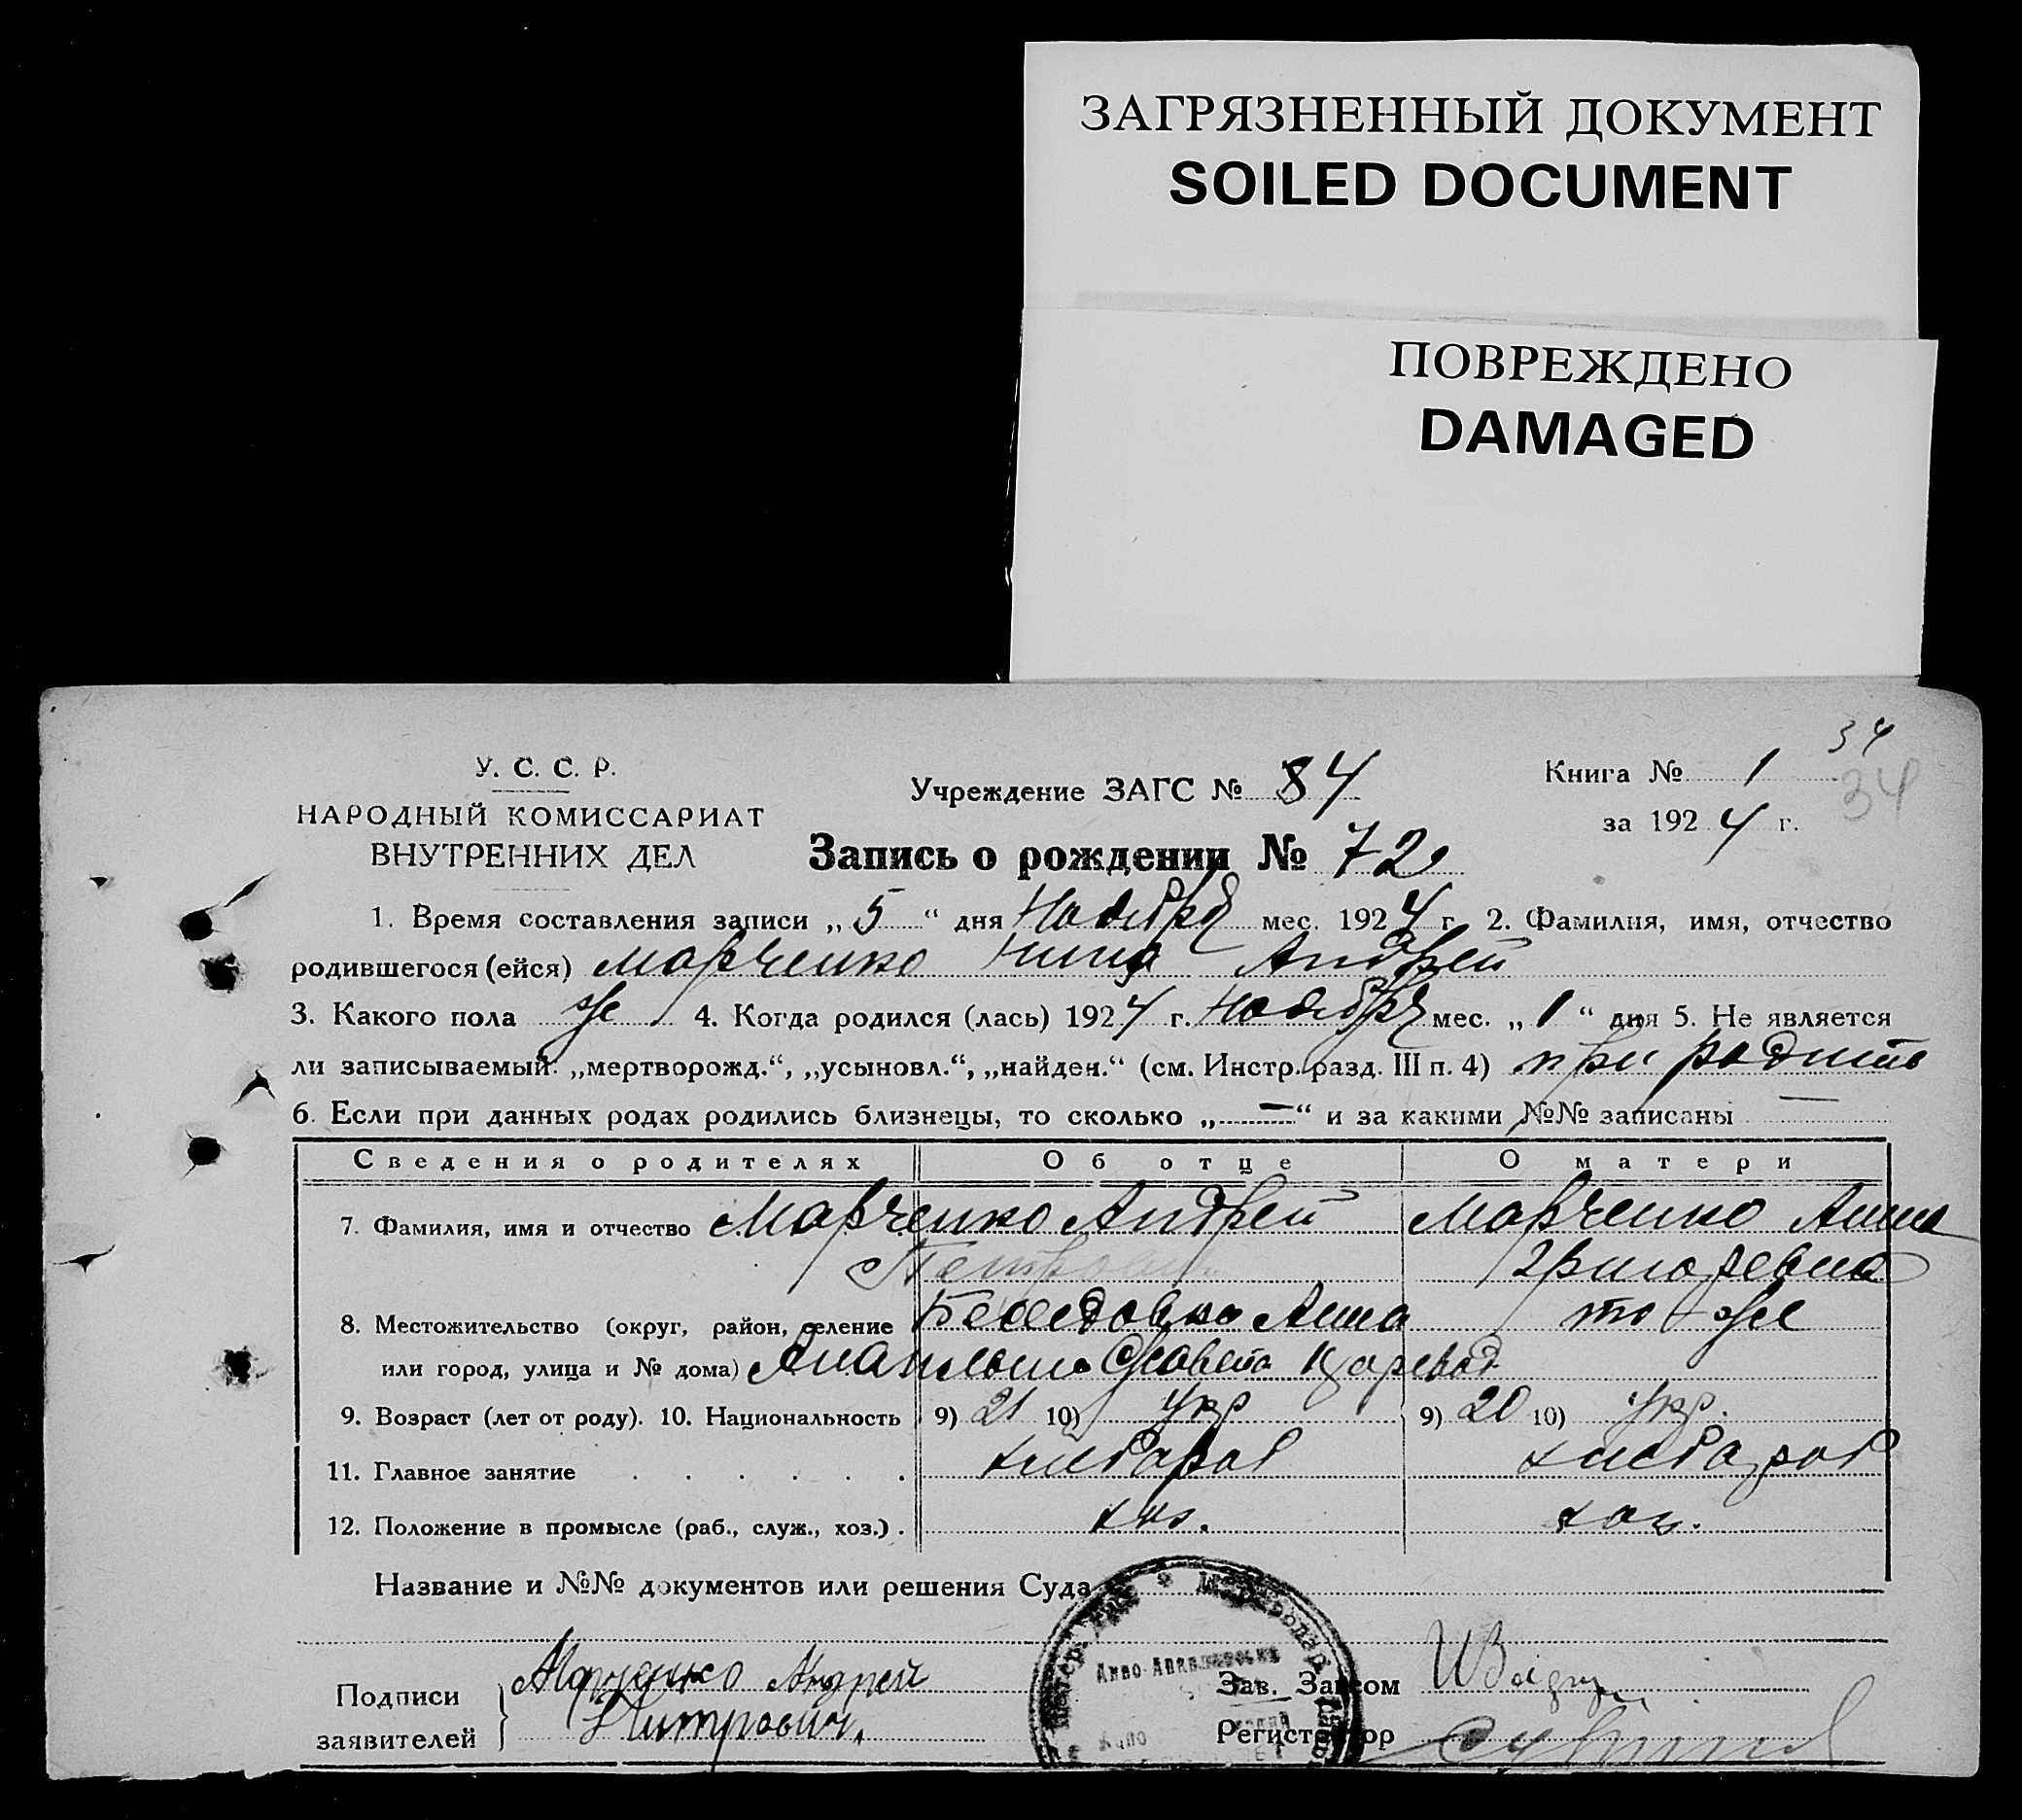 ЗАГРЯЗНЕННЫЙ ДОКУМЕНТ
SOILED DOCUMENT
ПОВРЕЖДЕНО
DAMAGED
34
34
У. С. С. Р.
НАРОДНЫЙ КОМИССАРИАТ
ВНУТРЕННИХ ДЕЛ
Учреждение ЗАГС № 84
Книга № 1
за 1924 г.
Запись о рождении № 72
1. Время составления записи „5“ дня Ноября мес. 1924 г. 2. Фамилия, имя, отчество
родившегося (ейся) Марченко Нина Андрей
3. Какого пола же 4. Когда родился (лась) 1924 г. Ноября мес. „1“ дня 5. Не является
ли записываемый: „мертворожд.“, „усыновл.“, „найден.“ (см. Инстр. разд. III п. 4) при
6. Если при данных родах родились близнецы, то сколько „—“ и за какими №№ записаны —
Сведения о родителях Об отце О матери
7. Фамилия, имя и отчество Марченко Андрей Марченко Анна
Петрович Григоревна
8. Местожительство (округ, район, селение то же
или город, улица и № дома)
9. Возраст (лет от роду). 10. Национальность 9) 21 10) укр 9) 20 10) укр.
11. Главное занятие хлебароб хлебароб
12. Положение в промысле (раб., служ., хоз.).
Название и №№ документов или решения Суда
Подписи заявителей Марченко Андрей
Питрович.
Зав. Загсом
Регистратор